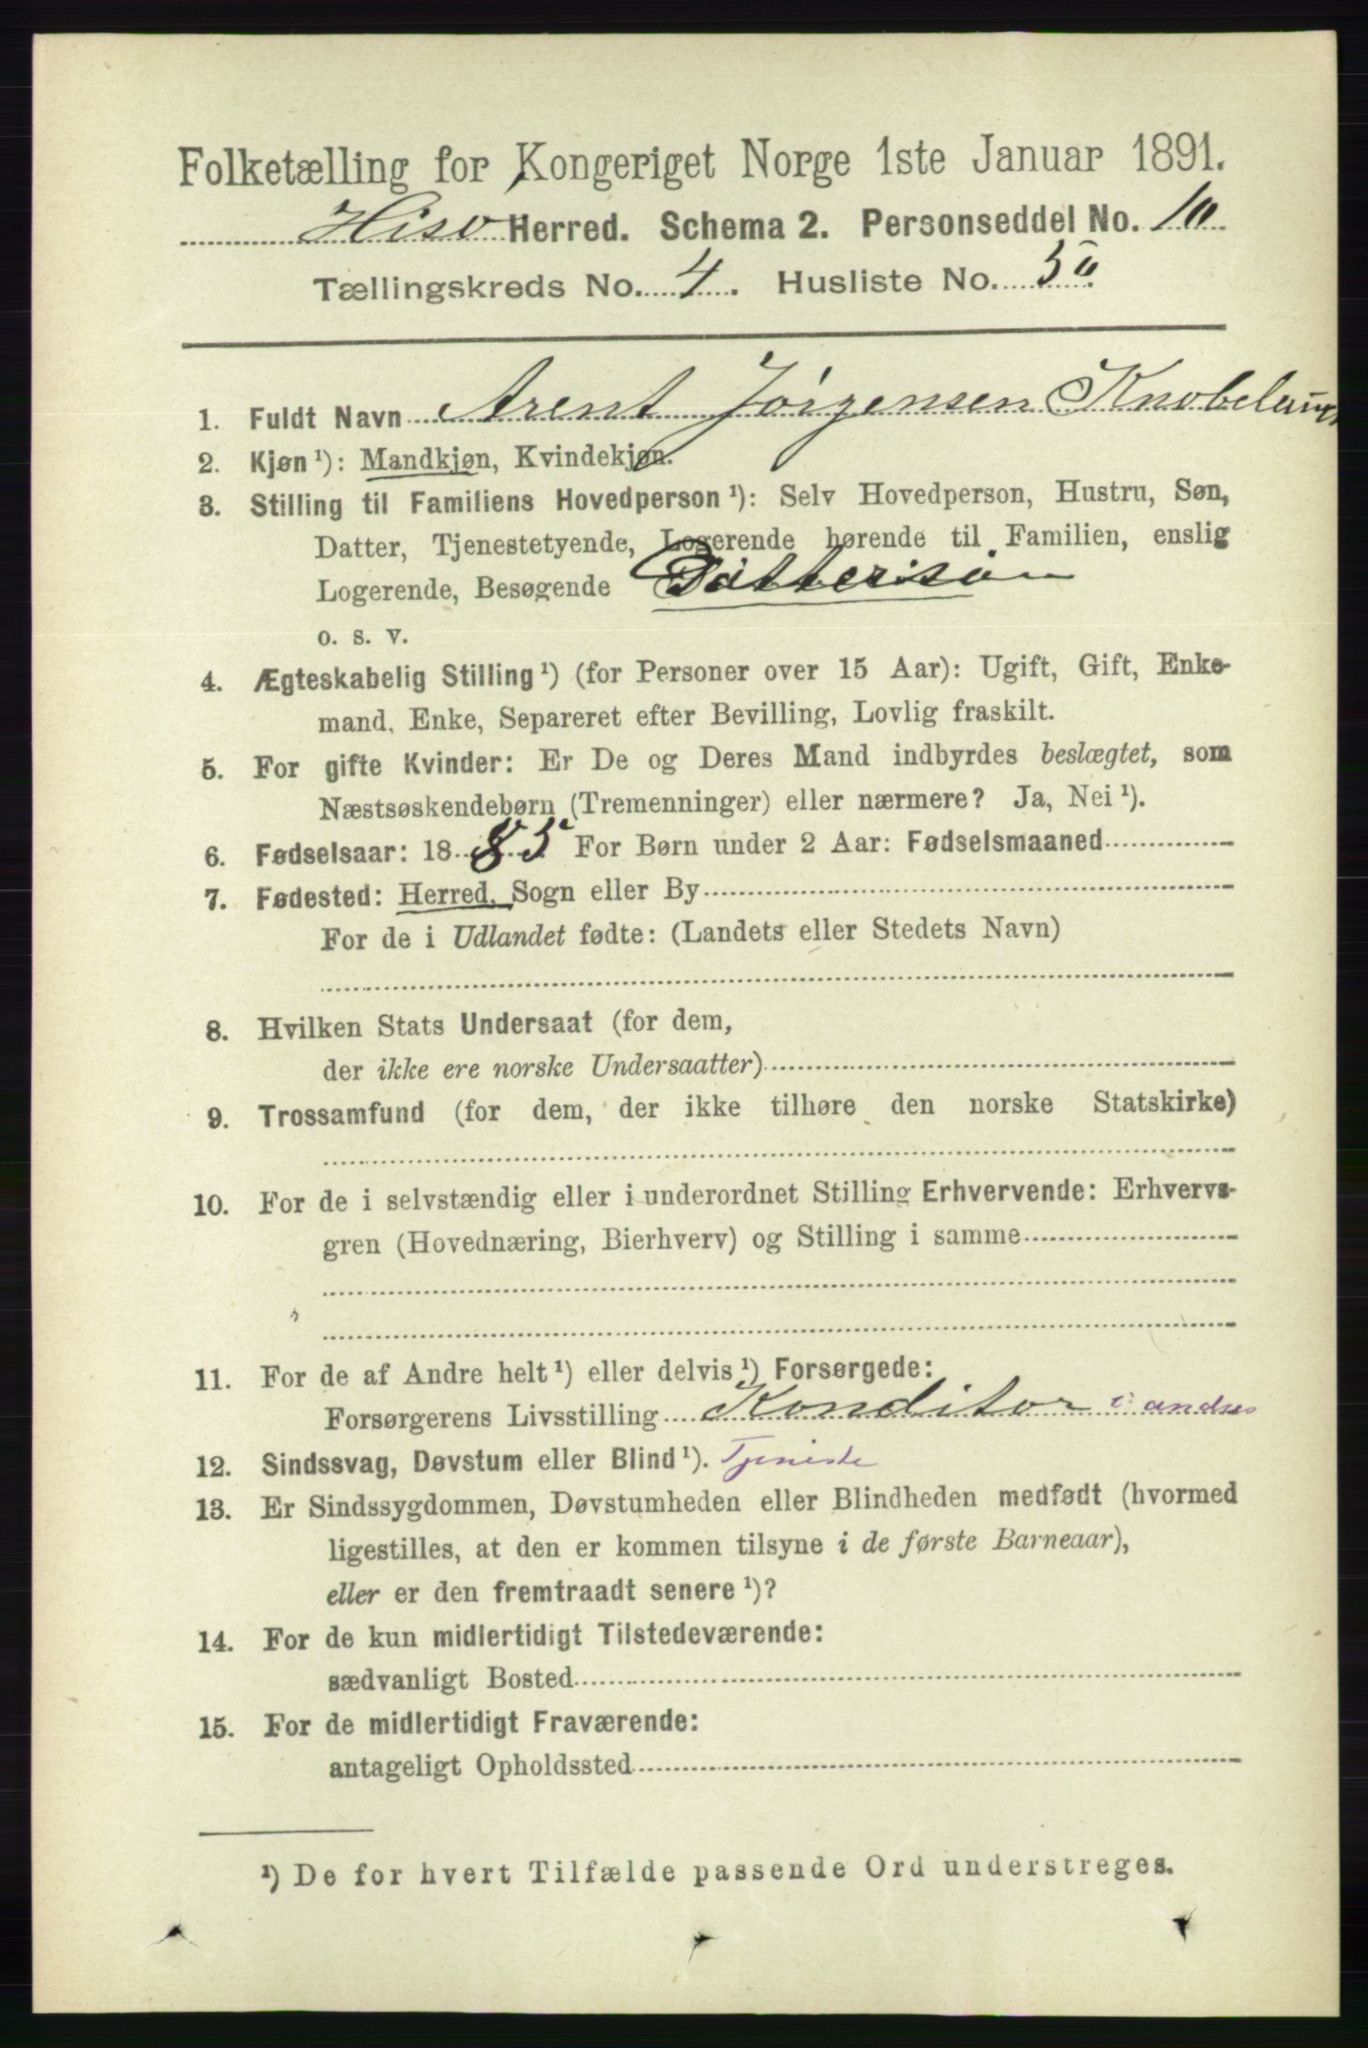 Folketælling for Kongeriget Norge 1ste Januar 1891.
Hisø Herred. Schema 2. Personseddel No. 10
Tællingskreds No. 4. Husliste No. 50
1. Fuldt Navn Arent Jørgensen
2. Kjøn¹): Mandkjøn, Kvindekjøn.
3. Stilling til Familiens Hovedperson¹): Selv Hovedperson, Hustru, Søn,
Datter, Tjenestetyende, Logerende hørende til Familien, enslig
Logerende, Besøgende Dattersøn
o. s. v.
4. Ægteskabelig Stilling¹) (for Personer over 15 Aar): Ugift, Gift, Enke-
mand, Enke, Separeret efter Bevilling, Lovlig fraskilt.
5. For gifte Kvinder: Er De og Deres Mand indbyrdes beslægtet, som
Næstsøskendebørn (Tremenninger) eller nærmere? Ja, Nei¹).
6. Fødselsaar: 1885 For Børn under 2 Aar: Fødselsmaaned
7. Fødested: Herred, Sogn eller By
For de i Udlandet fødte: (Landets eller Stedets Navn)
8. Hvilken Stats Undersaat (for dem,
der ikke ere norske Undersaatter)
9. Trossamfund (for dem, der ikke tilhøre den norske Statskirke)
10. For de i selvstændig eller i underordnet Stilling Erhvervende: Erhvervs-
gren (Hovednæring, Bierhverv) og Stilling i samme
11. For de af Andre helt¹) eller delvis¹) Forsørgede:
Forsørgerens Livsstilling Konditor i andres
12. Sindssvag, Døvstum eller Blind¹). Tjeneste
13. Er Sindssygdommen, Døvstumheden eller Blindheden medfødt (hvormed
ligestilles, at den er kommen tilsyne i de første Barneaar),
eller er den fremtraadt senere¹)?
14. For de kun midlertidigt Tilstedeværende:
sædvanligt Bosted
15. For de midlertidigt Fraværende:
antageligt Opholdssted
¹) De for hvert Tilfælde passende Ord understreges.